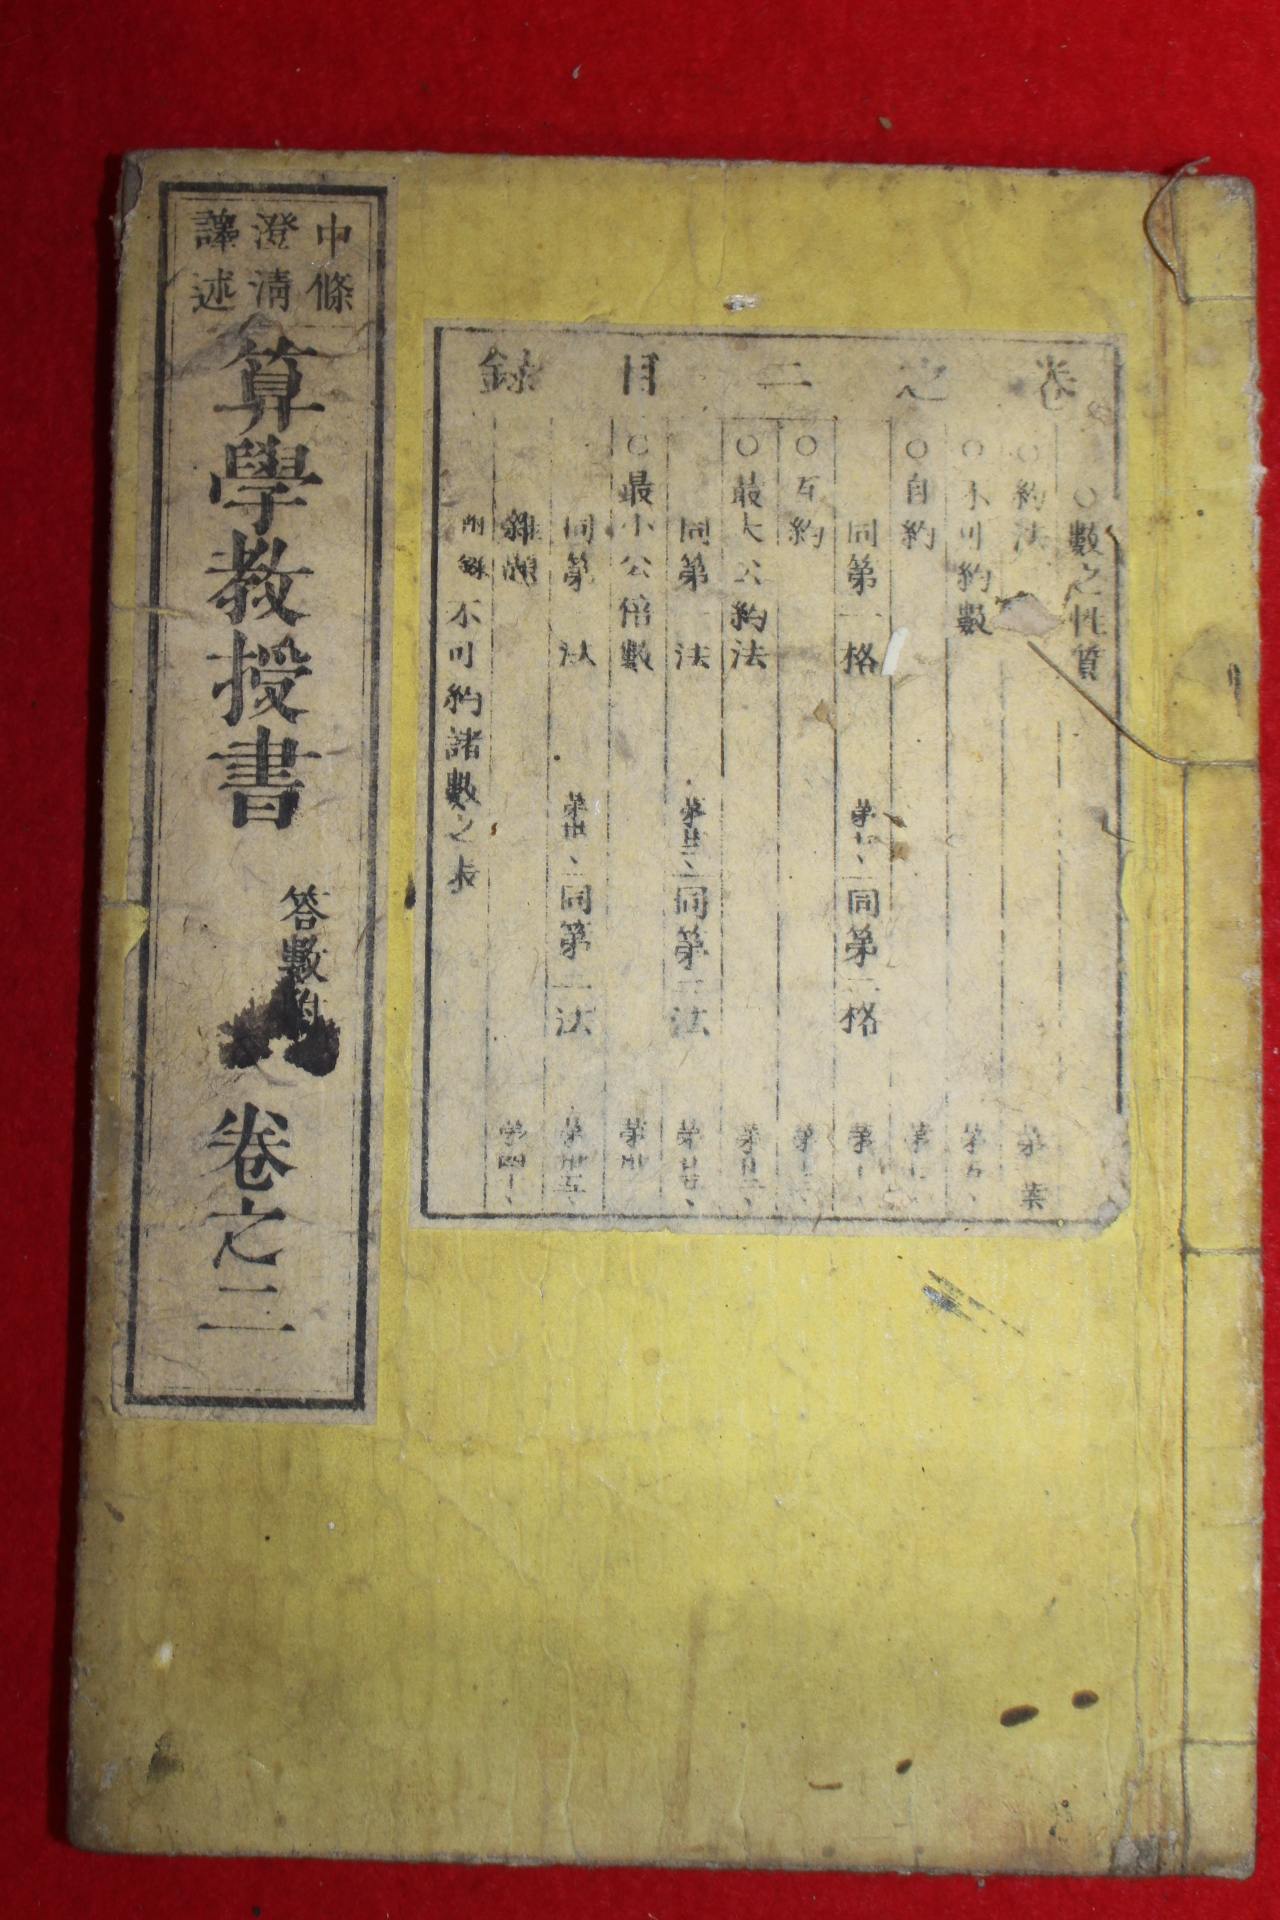 中條
澄淸
譯述
算學教授書
答數
卷之二
卷之二目錄
○數之性質
○約法 第 葉
○不可約數 第五
○自約 第
同第一格 第七 同第二格 第十
○互約 第十
○最大公約法 第廿二
同第一法 第廿三 同第二法 第廿五
○最小公倍數 第卅
同第一法 第卅二 同第二法 第卅五
雜題 第四十
附錄 不可約諸數之表